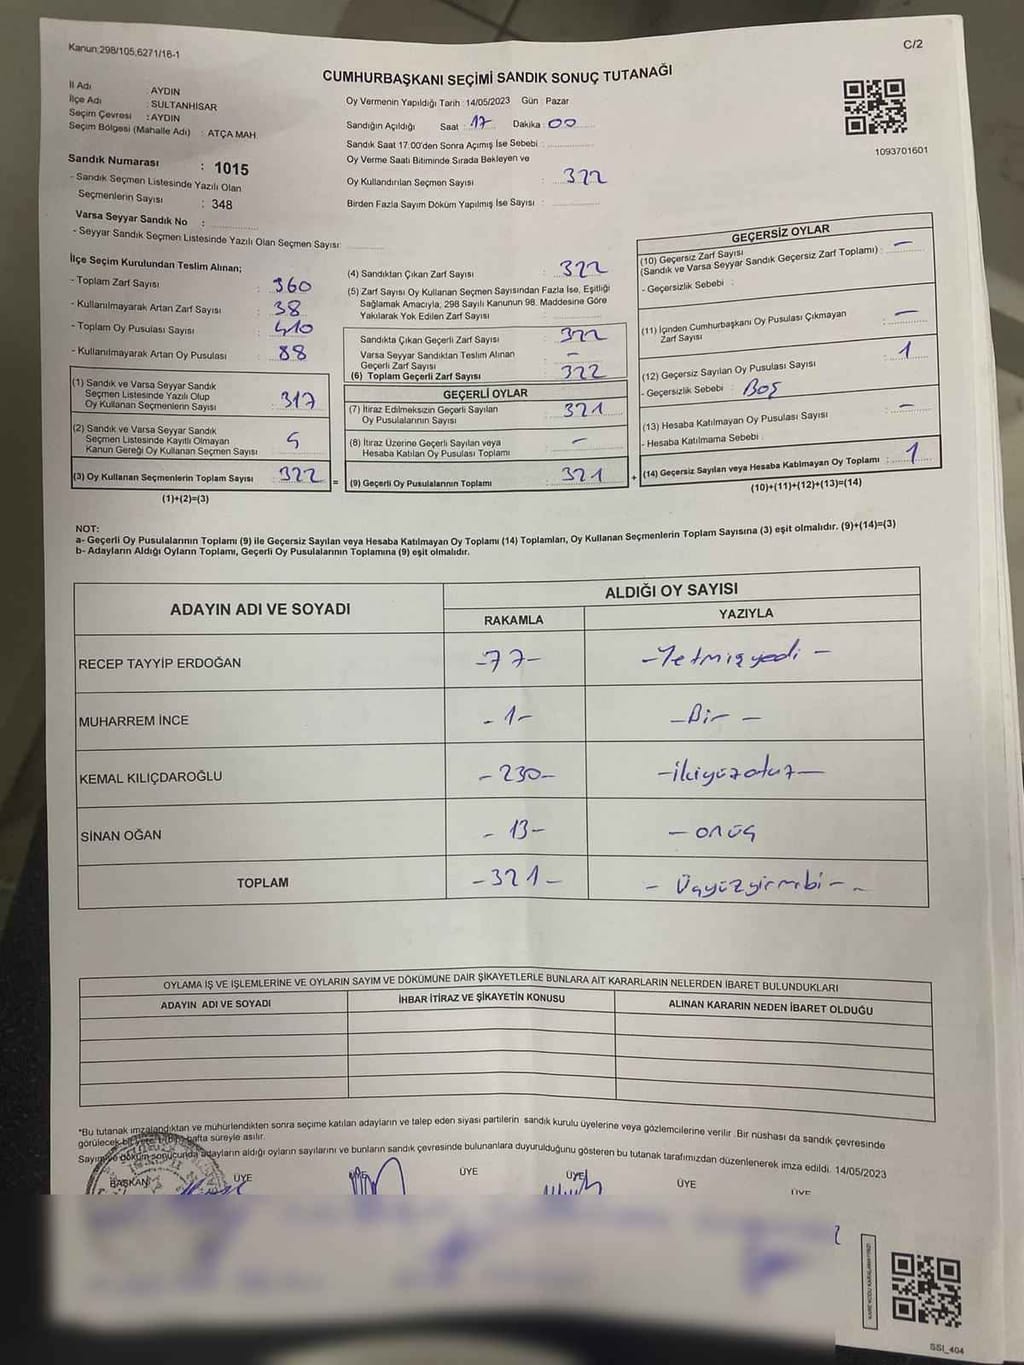 Kanun:298/105,6271/16-1
C/2
CUMHURBAŞKANI SEÇİMİ SANDIK SONUÇ TUTANAĞI
İl Adı : AYDIN
İlçe Adı : SULTANHİSAR
Seçim Çevresi : AYDIN
Seçim Bölgesi (Mahalle Adı) : ATÇA MAH.
Oy Vermenin Yapıldığı Tarih : 14/05/2023 Gün : Pazar
Sandığın Açıldığı Saat : 17 Dakika : 00
Sandık Saat 17.00'den Sonra Açımış İse Sebebi :
Oy Verme Saati Bitiminde Sırada Bekleyen ve
Oy Kullandırılan Seçmen Sayısı : 322
Birden Fazla Sayım Döküm Yapılmış İse Sayısı :
1093701601
Sandık Numarası : 1015
- Sandık Seçmen Listesinde Yazılı Olan
Seçmenlerin Sayısı : 348
Varsa Seyyar Sandık No :
- Seyyar Sandık Seçmen Listesinde Yazılı Olan Seçmen Sayısı:
İlçe Seçim Kurulundan Teslim Alınan;
- Toplam Zarf Sayısı : 360
- Kullanılmayarak Artan Zarf Sayısı : 38
- Toplam Oy Pusulası Sayısı : 410
- Kullanılmayarak Artan Oy Pusulası : 88
(1) Sandık ve Varsa Seyyar Sandık
Seçmen Listesinde Yazılı Olup
Oy Kullanan Seçmenlerin Sayısı : 317
(2) Sandık ve Varsa Seyyar Sandık
Seçmen Listesinde Kayıtlı Olmayan
Kanun Gereği Oy Kullanan Seçmen Sayısı : 5
(3) Oy Kullanan Seçmenlerin Toplam Sayısı : 322
(1)+(2)=(3)
(4) Sandıktan Çıkan Zarf Sayısı : 322
(5) Zarf Sayısı Oy Kullanan Seçmen Sayısından Fazla İse, Eşitliği
Sağlamak Amacıyla, 298 Sayılı Kanunun 98. Maddesine Göre
Yakılarak Yok Edilen Zarf Sayısı :
Sandıkta Çıkan Geçerli Zarf Sayısı : 322
Varsa Seyyar Sandıktan Teslim Alınan
Geçerli Zarf Sayısı : –
(6) Toplam Geçerli Zarf Sayısı : 322
=
GEÇERLİ OYLAR
(7) İtiraz Edilmeksizin Geçerli Sayılan
Oy Pusulalarının Sayısı : 321
(8) İtiraz Üzerine Geçerli Sayılan veya
Hesaba Katılan Oy Pusulası Toplamı : –
(9) Geçerli Oy Pusulalarının Toplamı : 321
+
GEÇERSİZ OYLAR
(10) Geçersiz Zarf Sayısı
(Sandık ve Varsa Seyyar Sandık Geçersiz Zarf Toplamı) : –
- Geçersizlik Sebebi :
(11) İçinden Cumhurbaşkanı Oy Pusulası Çıkmayan
Zarf Sayısı : –
(12) Geçersiz Sayılan Oy Pusulası Sayısı : 1
- Geçersizlik Sebebi : Boş
(13) Hesaba Katılmayan Oy Pusulası Sayısı : –
- Hesaba Katılmama Sebebi :
(14) Geçersiz Sayılan veya Hesaba Katılmayan Oy Toplamı : 1
(10)+(11)+(12)+(13)=(14)
NOT:
a- Geçerli Oy Pusulalarının Toplamı (9) ile Geçersiz Sayılan veya Hesaba Katılmayan Oy Toplamı (14) Toplamları, Oy Kullanan Seçmenlerin Toplam Sayısına (3) eşit olmalıdır. (9)+(14)=(3)
b- Adayların Aldığı Oyların Toplamı, Geçerli Oy Pusulalarının Toplamına (9) eşit olmalıdır.
ADAYIN ADI VE SOYADI
ALDIĞI OY SAYISI
RAKAMLA YAZIYLA
RECEP TAYYİP ERDOĞAN -77- -Yetmişyedi-
MUHARREM İNCE -1- -Bir-
KEMAL KILIÇDAROĞLU -230- -İkiyüzotuz-
SİNAN OĞAN -13- -onüç
TOPLAM -321- -Üçyüzyirmibi--
OYLAMA İŞ VE İŞLEMLERİNE VE OYLARIN SAYIM VE DÖKÜMÜNE DAİR ŞİKAYETLERLE BUNLARA AİT KARARLARIN NELERDEN İBARET BULUNDUKLARI
ADAYIN ADI VE SOYADI İHBAR İTİRAZ VE ŞİKAYETİN KONUSU ALINAN KARARIN NEDEN İBARET OLDUĞU
*Bu tutanak imzalandıktan ve mühürlendikten sonra seçime katılan adayların ve talep eden siyasi partilerin sandık kurulu üyelerine veya gözlemcilerine verilir .Bir nüshası da sandık çevresinde
görülecek bir yere, bir hafta süreyle asılır.
Sayım ve döküm sonucunda adayların aldığı oyların sayılarını ve bunların sandık çevresinde bulunanlara duyurulduğunu gösteren bu tutanak tarafımızdan düzenlenerek imza edildi. 14/05/2023
BAŞKAN ÜYE ÜYE ÜYE ÜYE ÜYE ÜYE
SSI_404